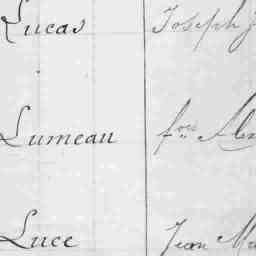 Lucas Joseph J
Lumeau fois Alex
Luce Jean Ma